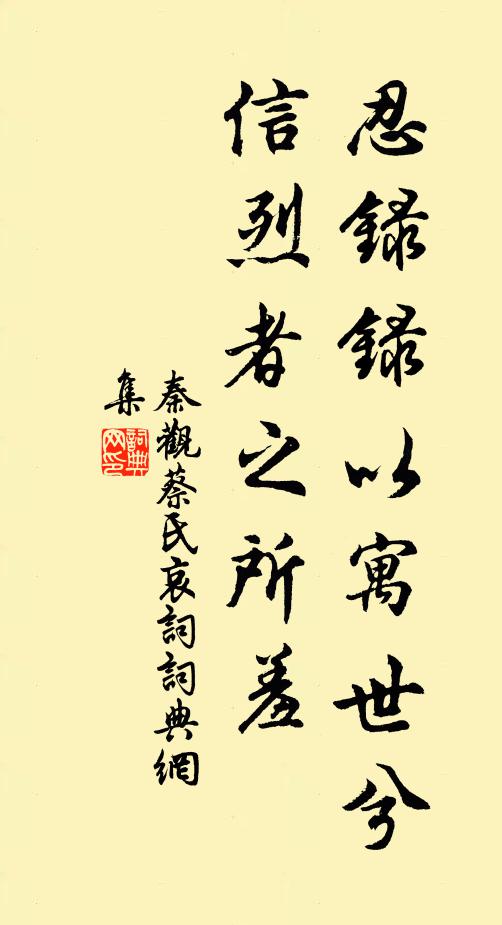 忍録録以寓世兮
信烈者之所羞
秦觀蔡氏哀詞詞典網
集
詞典网印